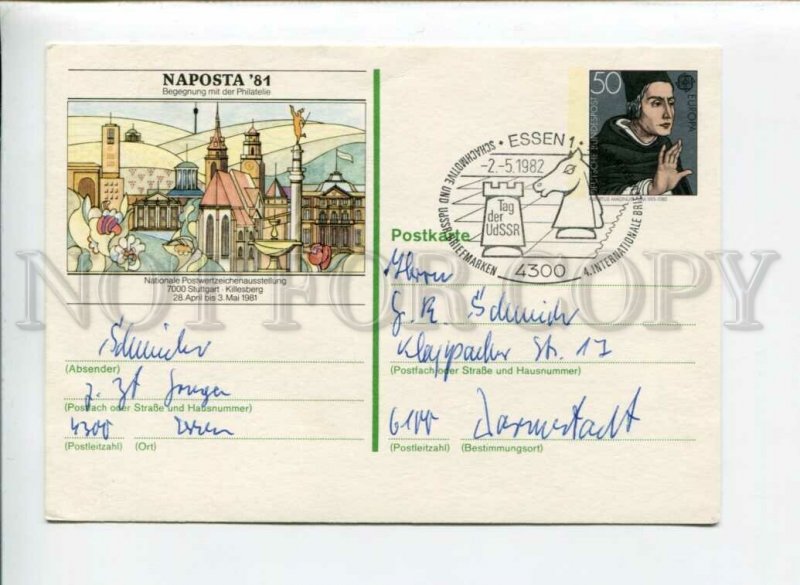 NAPOSTA '81
Begegnung mit der Philatelie
Nationale Postwertzeichenausstellung
7000 Stuttgart · Killesberg
28. April bis 3. Mai 1981
50
EUROPA
ESSEN 1
-2.-5.1982
SCHACHMOTIVE UND UDSSR-BRIEFMARKEN
Tag
der
UdSSR
4300
4. INTERNATIONALE
Postkarte
NOT FOR COPY
Herrn
Schmidt
Str. 17
(Absender)
(Postfach oder Straße und Hausnummer)
z. Zt
(Postfach oder Straße und Hausnummer)
4300 Essen
6100 Darmstadt
(Postleitzahl) (Ort)
(Postleitzahl) (Bestimmungsort)